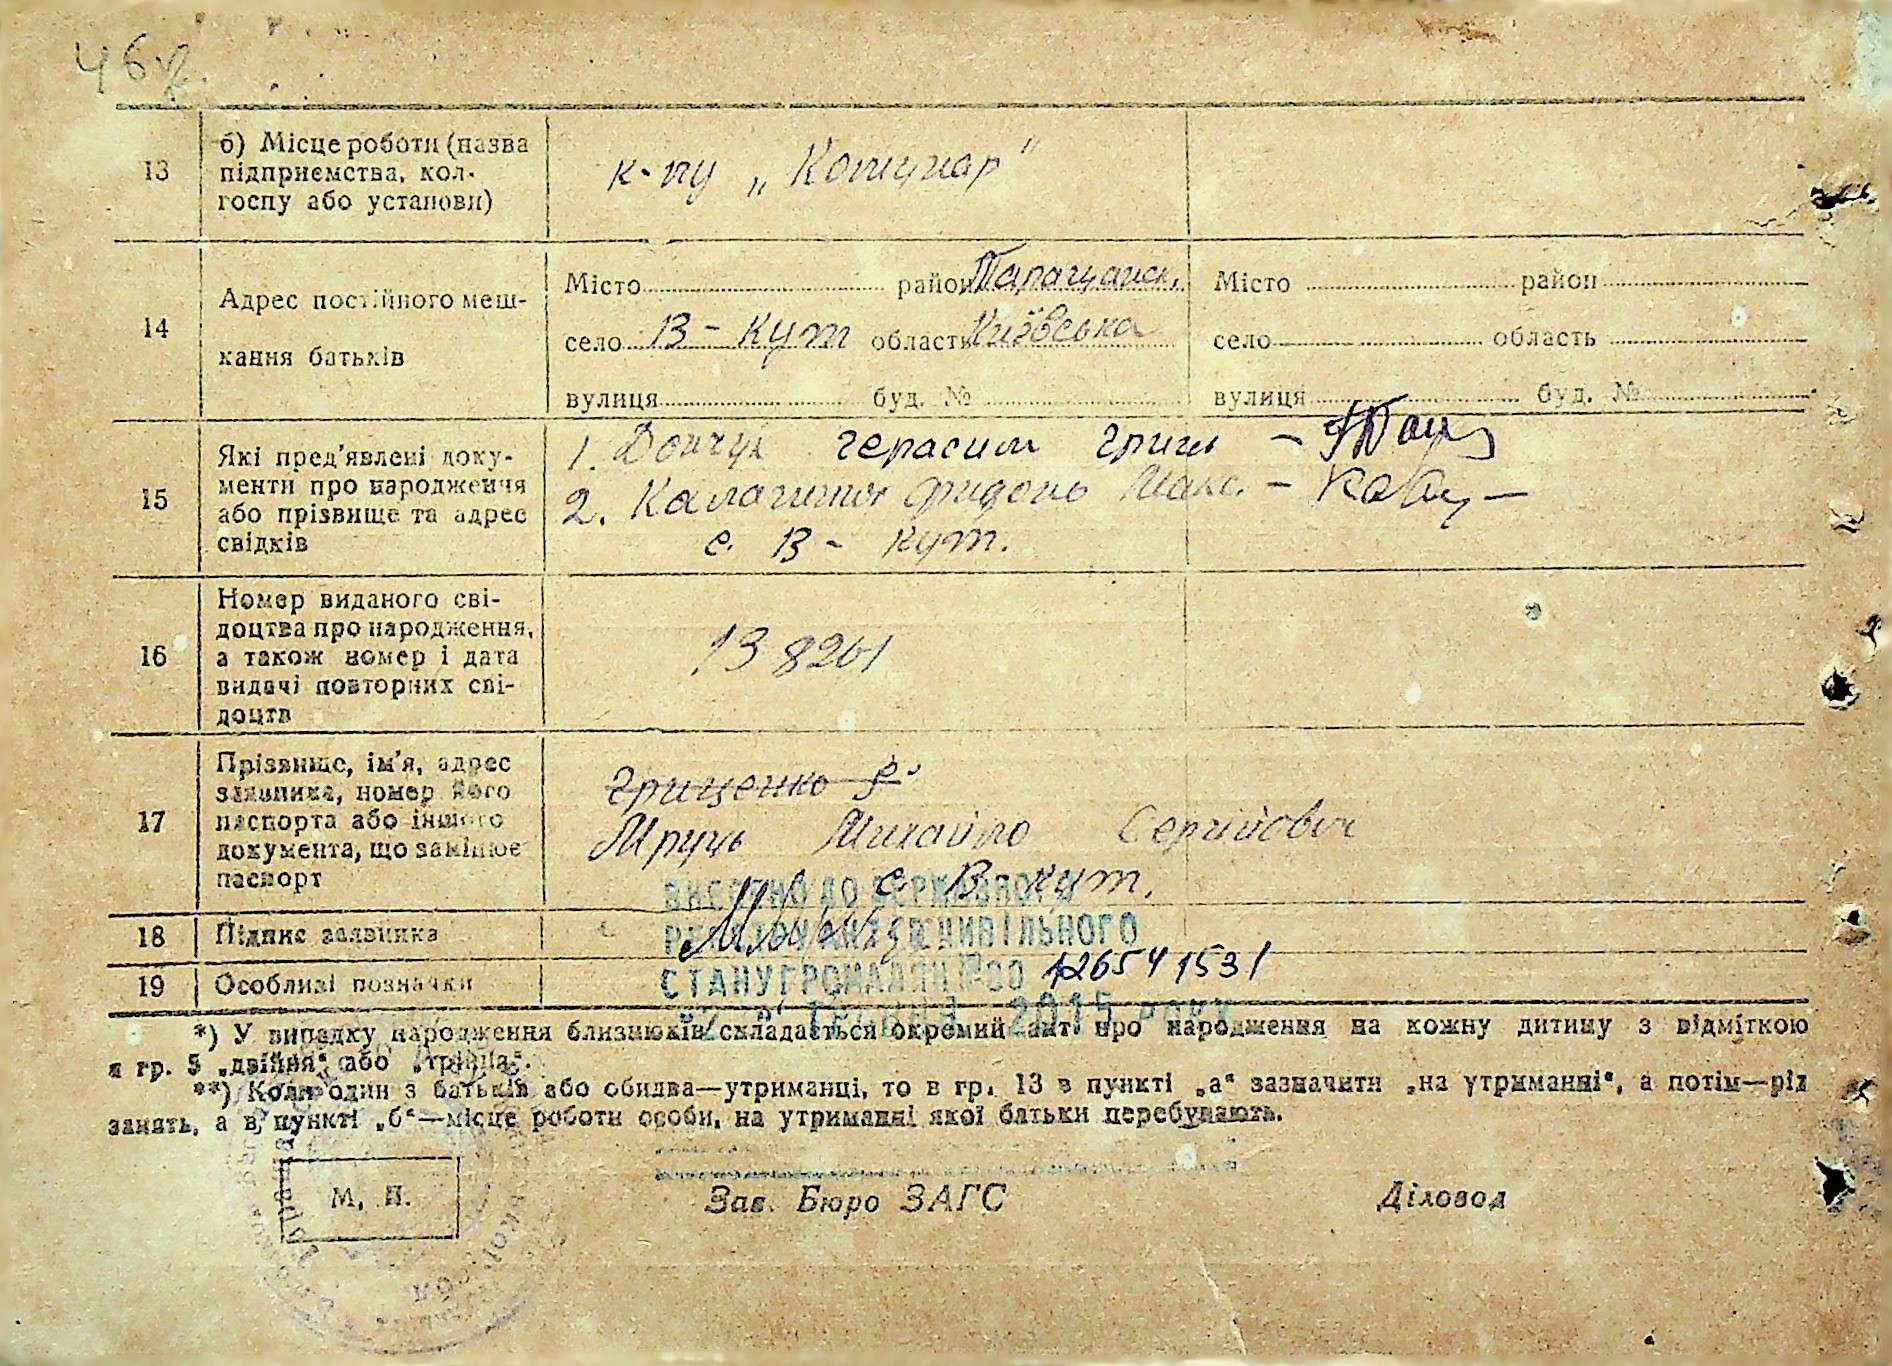 46
13
б) Місце роботи (назва
підприємства, кол-
госпу або установи)
к-пу „Комунар"
14
Адрес постійного меш-
кання батьків
Місто район Таращанськ.
село В-Кут область Київська
вулиця буд. №
Місто район
село область
вулиця буд. №
15
Які пред'явлені доку-
менти про народження
або прізвище та адрес
свідків
1. Герасим Григ
2. Макс.
с. В-Кут.
16
Номер виданого сві-
доцтва про народження,
а також номер і дата
видачі повторних сві-
доцтв
138261
17
Прізвище, ім'я, адрес
заявника, номер його
паспорта або іншого
документа, що замінює
паспорт
Грищенко
Мруць Михайло Сергійович
с. В-Кут.
18
Підпис заявника
19
Особливі позначки
ВНЕСЕНО ДО ДЕРЖАВНОГО
РЕЄСТРУ АКТІВ ЦИВІЛЬНОГО
СТАНУ ГРОМАДЯН №00 126541531
2015 року
*) У випадку народження близнюків складається окремий акт про народження на кожну дитину з відміткою
в гр. 5 „двійня“ або „трійня“.
**) Коли один з батьків або обидва—утриманці, то в гр. 13 в пункті „а“ зазначити „на утриманні“, а потім—рід
занять, а в пункті „б“—місце роботи особи, на утриманні якої батьки перебувають.
М. П.
Зав. Бюро ЗАГС
Діловод